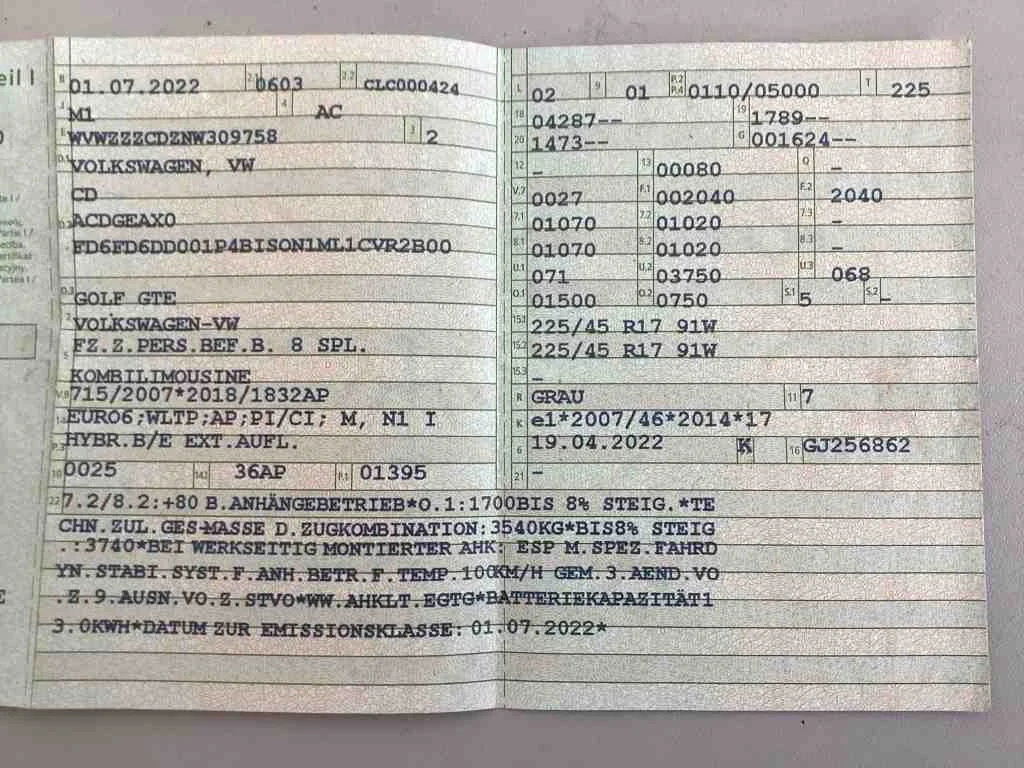 eil I
B 01.07.2022 2.1 0603 2.2 CLC000424
J M1 4 AC
E WVWZZZCDZNW309758 3 2
D.1 VOLKSWAGEN, VW
CD
D.2 ACDGEAX0
FD6FD6DD001P4BISON1ML1CVR2B00
D.3 GOLF GTE
2 VOLKSWAGEN-VW
5 FZ.Z.PERS.BEF.B. 8 SPL.
KOMBILIMOUSINE
V.9 715/2007*2018/1832AP
14 EURO6;WLTP;AP;PI/CI; M, N1 I
P.3 HYBR.B/E EXT.AUFL.
10 0025 14.1 36AP P.1 01395
L 02 9 01 P.2 P.4 0110/05000 T 225
18 04287-- 19 1789--
20 1473-- G 001624--
12 - 13 00080 Q -
V.7 0027 F.1 002040 F.2 2040
7.1 01070 7.2 01020 7.3 -
8.1 01070 8.2 01020 8.3 -
U.1 071 U.2 03750 U.3 068
O.1 01500 O.2 0750 S.1 5 S.2 -
15.1 225/45 R17 91W
15.2 225/45 R17 91W
15.3 -
R GRAU 11 7
K e1*2007/46*2014*17
6 19.04.2022 K 16 GJ256862
21 -
22 7.2/8.2:+80 B.ANHÄNGEBETRIEB*O.1:1700BIS 8% STEIG.*TE
CHN.ZUL.GES-MASSE D.ZUGKOMBINATION:3540KG*BIS8% STEIG
.:3740*BEI WERKSEITIG MONTIERTER AHK: ESP M.SPEZ.FAHRD
YN.STABI.SYST.F.ANH.BETR.F.TEMP.100KM/H GEM.3.AEND.VO
.Z.9.AUSN.VO.Z.STVO*WW.AHKLT.EGTG*BATTERIEKAPAZITÄT1
3.0KWH*DATUM ZUR EMISSIONSKLASSE: 01.07.2022*